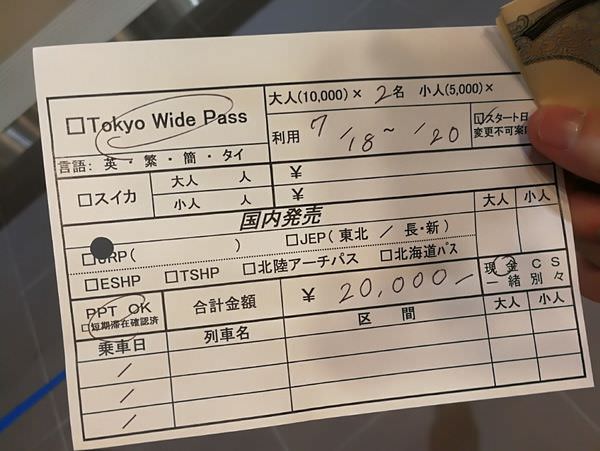 大人(10,000)× 2名 小人(5,000)×
□Tokyo Wide Pass
利用 7/18~ /20
☑スタート日
変更不可案内
言語: 英・繁・簡・タイ
□スイカ 大人 人 ¥
小人 人 ¥
国内発売 大人 小人
□JRP( ) □JEP(東北 / 長・新)
□ESHP □TSHP □北陸アーチパス □北海道パス
PPT OK
□短期滞在確認済
合計金額 ¥ 20,000-
現金 CS
一緒 別々
乗車日 列車名 区間 大人 小人
/
/
/